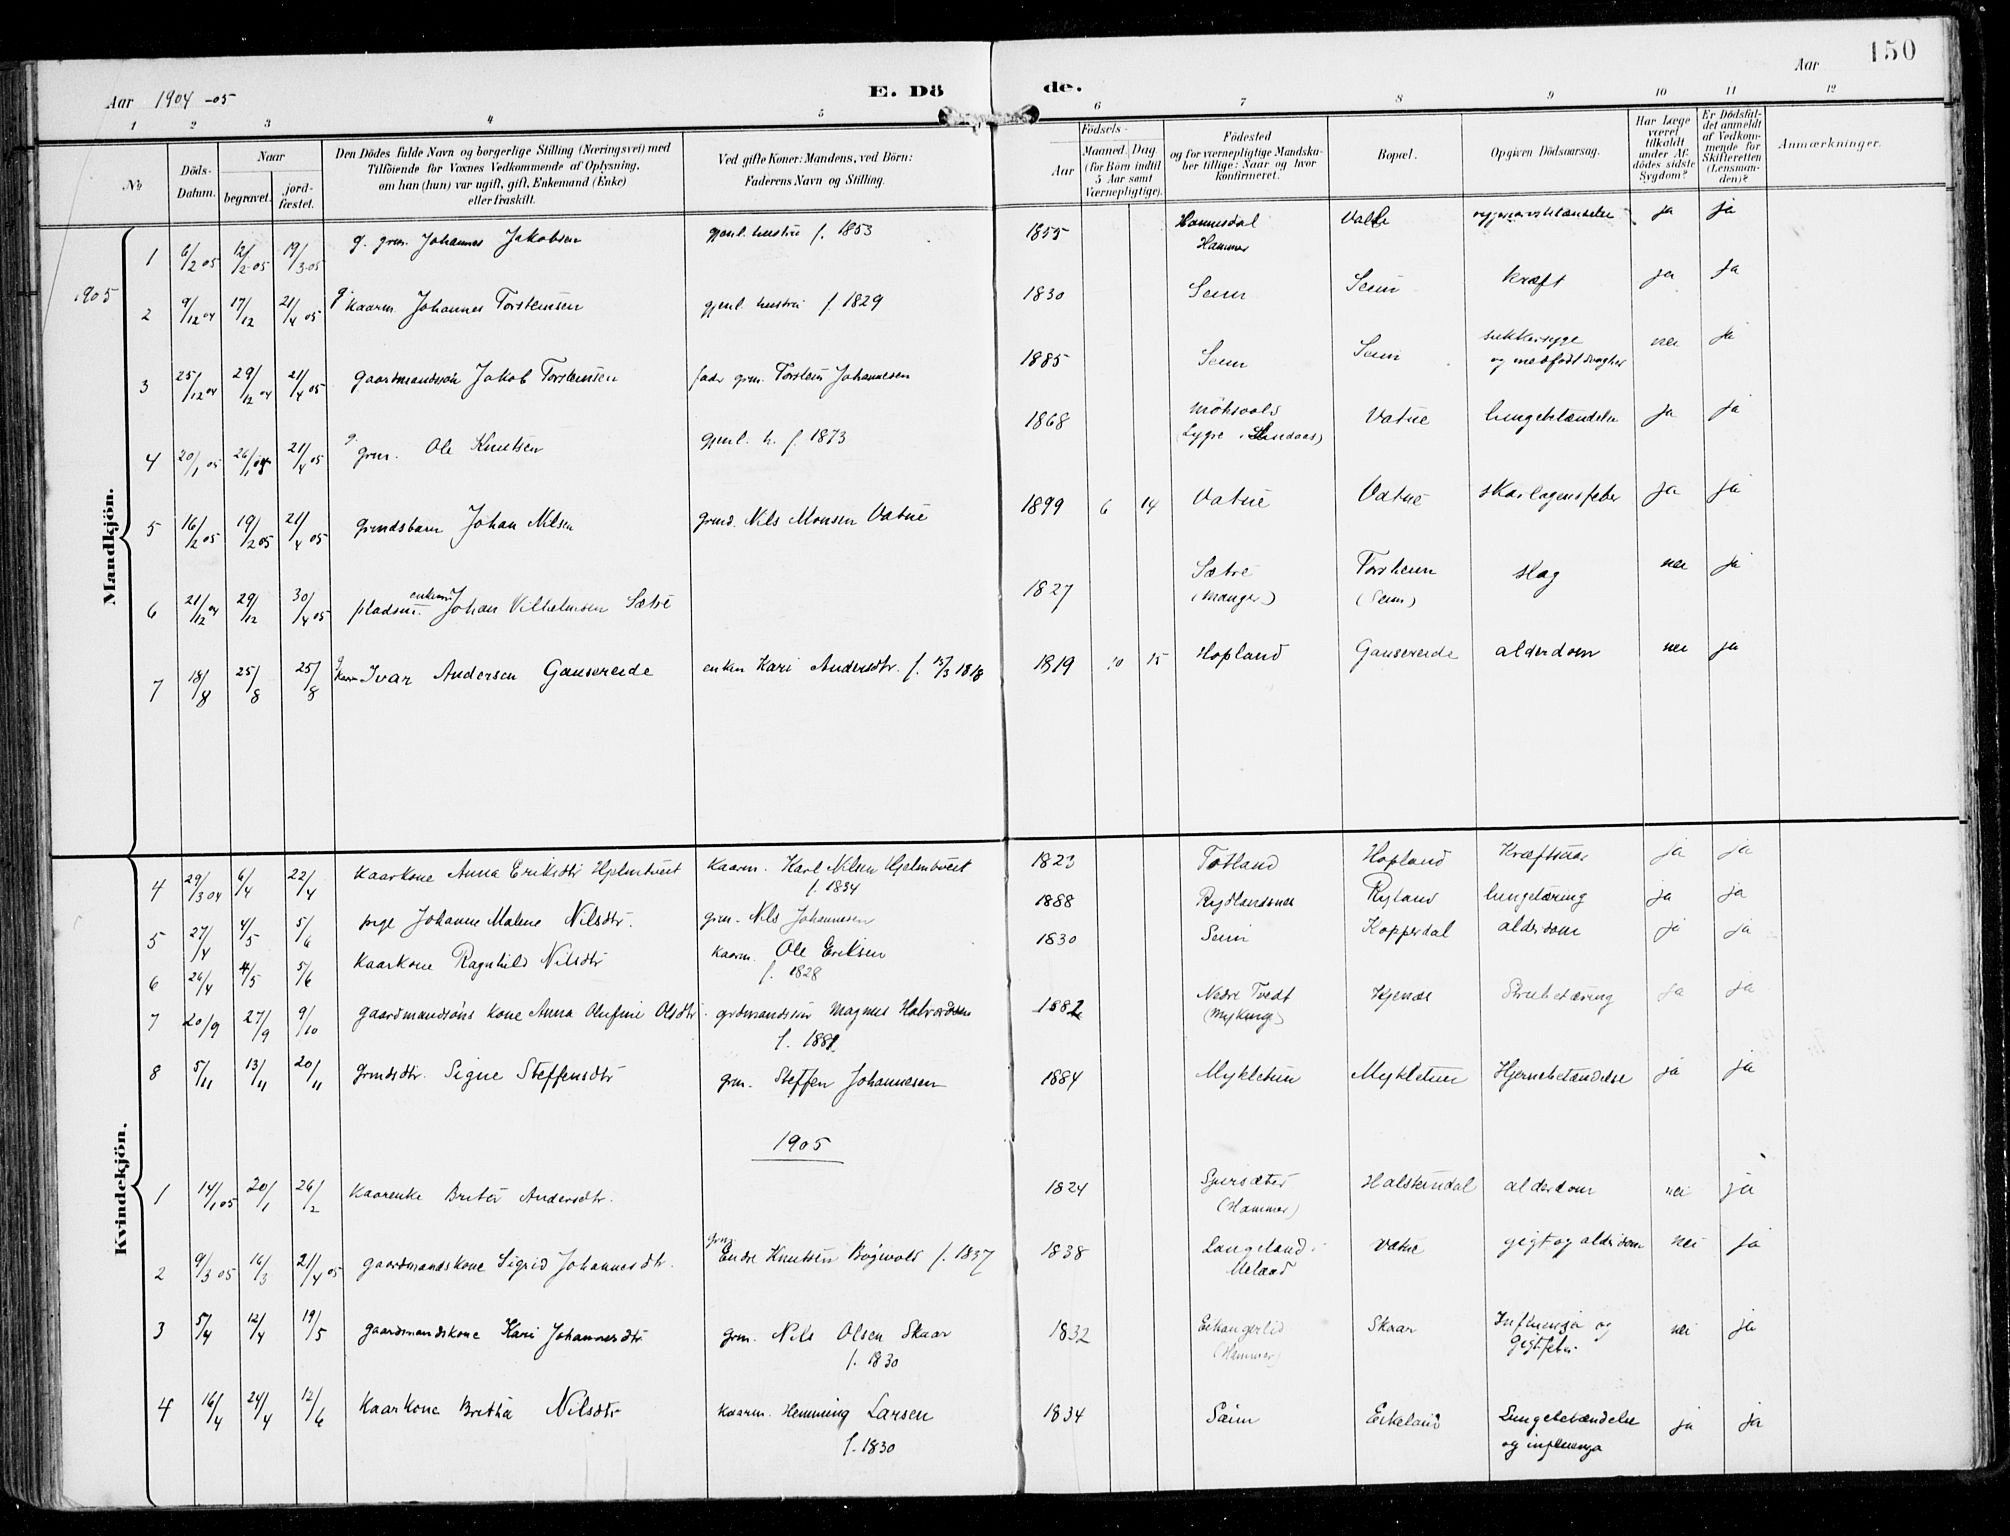 150
Aar 1904-05
E. Dö
de.
Aar
1 2 3 4 5 6 7 8 9 10 11 12
№
Döds-Datum.
Naar
begravet.
jord-fæstet.
Den Dödes fulde Navn og borgerlige Stilling (Næringsvei) med
Tilföiende for Voxnes Vedkommende af Oplysning,
om han (hun) var ugift, gift, Enkemand (Enke)
eller fraskilt.
Ved gifte Koner: Mandens, ved Börn:
Faderens Navn og Stilling.
Födsels-
Aar
Maaned. Dag.
(for Börn indtil
5 Aar samt
Værnepligtige).
Födested
og for værnepligtige Mandska-
ber tillige: Naar og hvor
konfirmeret.
Bopæl.
Opgiven Dödsaarsag.
Har Læge
været
tilkaldt
under Af-
dödes sidste
Sygdom?
Er Dödsfal-
det anmeldt
af Vedkom-
mende for
Skifteretten
(Lensman-
den)?
Anmærkninger.
Mandkjön.
1 6/2 05 12/2 05 19/3 05 g. grm. Johannes Jakobsen gjenl. hustru f. 1853 1855 Hannisdal Hammer Valle ja ja
1905
2 9/12 04 17/12 21/4 05 g. Kaarm. Johannes Torsteinsen gjenl. hustru f. 1829 1830 Seim Seim kræft ja ja
3 25/12 04 29/12 04 21/4 05 gaardmandssøn Jakob Torsteinsen fader grm. Torstein Johannesen 1885 Seim Seim sukkersyge og medfødt svaghet nei ja
4 20/1 05 26/1 05 21/4 05 g. grm. Ole Knutsen gjenl. h. f. 1873 1868 (Lygre i Lindaas) Vatne lungebetændelse ja ja
5 16/2 05 19/2 05 21/4 05 grmdsbarn Johan Nilsen grmd. Nils Monsen Vatne 1899 6 14 Vatne Vatne skarlagensfeber ja ja
6 21/12 04 29/12 30/4 05 pladsm. enkem. Johan Vilhelmsen Sætre 1827 Sætre (Manger) Torsheim (Seim) slag nei ja
7 18/8 25/8 25/8 g. Kaarm Ivar Andersen Gausereide enken Kari Andersdtr. f. 13/3 1818 1819 10 15 Hopland Gausereide alderdom nei ja
Kvindekjön.
4 29/3 04 6/4 22/4 Kaarkone Anna Eriksdtr Hjelmtveit Kaarm. Karl Nilsen Hjelmtveit f. 1834 1823 Totland Hopland Kræftsaar ja ja
5 27/4 4/5 5/6 pige Johanne Malene Nilsdtr. grm. Nils Johannesen 1888 Rydlandsnes Ryland lungetæring ja ja
6 26/4 4/5 5/6 Kaarkone Ragnhild Nilsdtr Kaarm. Ole Eriksen f. 1828 1830 Seim Kopperdal alderdom ja ja
7 20/9 27/9 9/10 gaardmandsøns kone Anna Olufine Olsdtr. grdmandssøn Magnus Halvordsen f. 1881 1882 Nedre Tvedt (Myking) Strubetæring ja ja
8 5/11 13/11 20/11 grmdsdtr. Signe Steffensdtr grm. Steffen Johannesen 1884 Mykletun Mykletun Hjernebetændelse ja ja
1905
1 14/1 05 20/1 26/2 Kaarenke Brita Andersdtr. 1824 (Hammer) Halstendal alderdom nei ja
2 9/3 05 16/3 21/4 05 gaardmandskone Sigrid Johannesdtr. grm. Endre Knutsen Bøgevold f. 1837 1838 Langeland i Meland Vatne gigt og alderdom nei ja
3 5/4 12/4 19/5 gaardmandskone Kari Johannesdtr grm. Nils Olsen Skaar f. 1830 1832 Eikangerlid (Hammer) Skaar Influenza og Gigtfeber nei ja
4 16/4 24/4 12/6 Kaarkone Britha Nilsdtr Kaarm. Hemming Larsen f. 1830 1834 Seim Eikeland Lungebetændelse og influenza ja ja